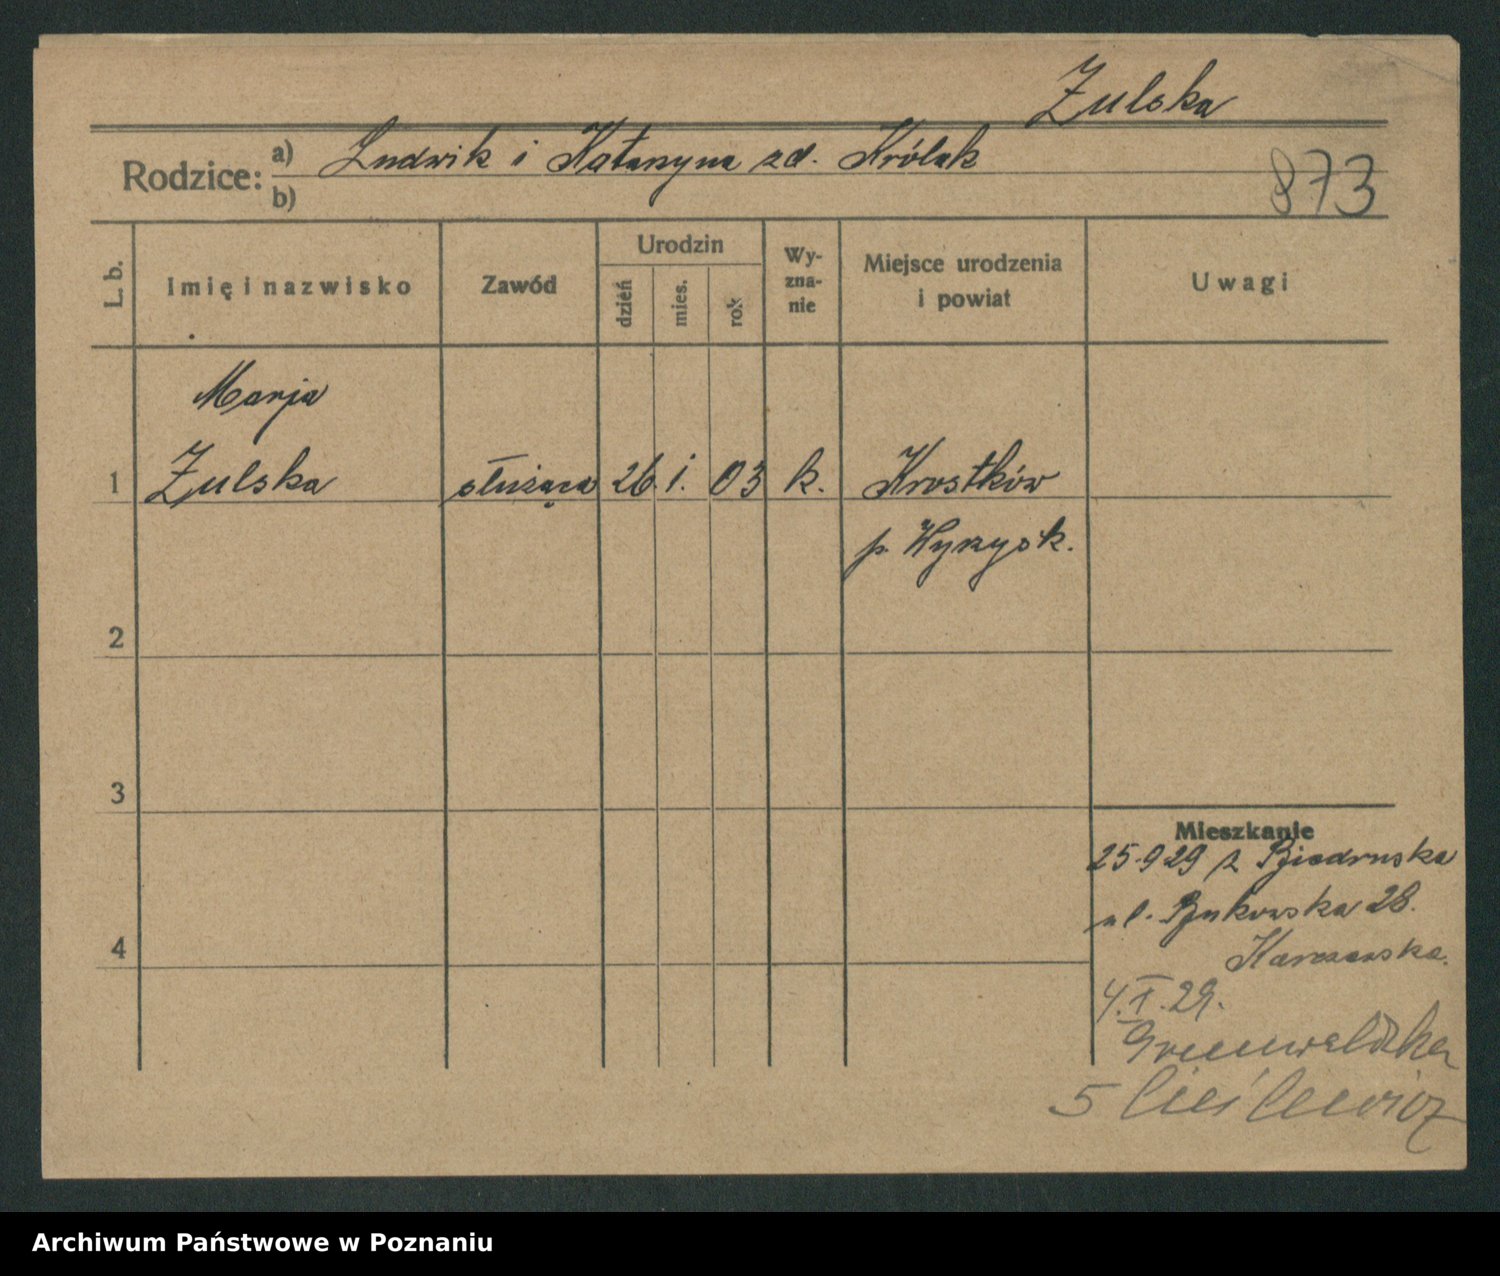 Zulska
Rodzice: a) Ludwik i Katarzyna zd. Królak
b)
873
L. b.
Imię i nazwisko
Zawód
Urodzin
dzień
mies.
rok
Wy-
zna-
nie
Miejsce urodzenia
i powiat
Uwagi
Marja
1 Zulska służąca 26. i. 03 k. Krostków
p. Wyrzysk.
2
3
Mieszkanie
25.9.29 z Biedruska
ul. Bukowska 28.
4
4.X.29.
Grunwaldzka
5 Cieślewicz
Archiwum Państwowe w Poznaniu